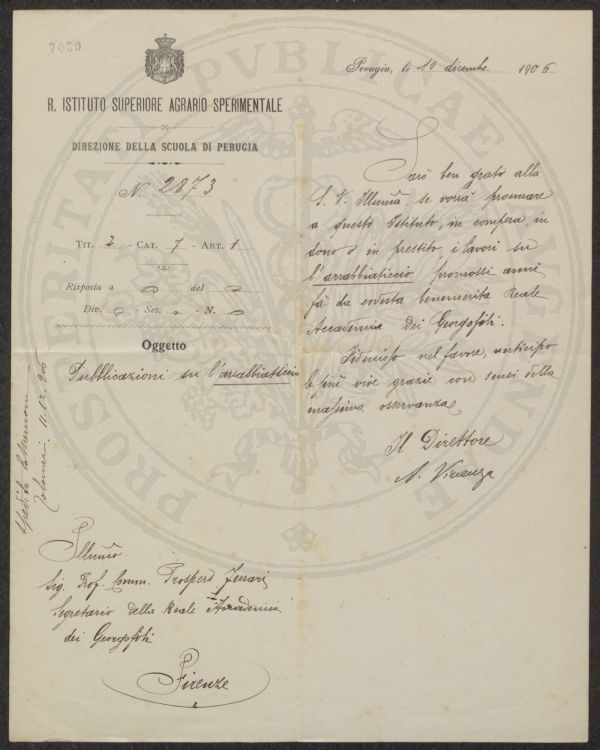 7059
R. ISTITUTO SUPERIORE AGRARIO SPERIMENTALE
DIREZIONE DELLA SCUOLA DI PERUGIA
N. 2873
TIT. 2 - CAT. 7 - ART. 1
Risposta a del
Div. Sez. N.
Oggetto
Pubblicazioni su l'arrabbiaticcio
Illmo
Sig. Prof. Comm. Prospero Ferrari
Segretario della Reale Accademia
dei Georgofili
Firenze
Perugia, li 10 dicembre 1906
Sarò ben grato alla
S. V. Illma se vorrà procurare
a questo Istituto, in compera, in
dono o in prestito, i lavori su
l'arrabbiaticcio promossi anni
fà da codesta benemerita Reale
Accademia dei Georgofili.
Fiducioso nel favore, anticipo
le più vive grazie con sensi della
massima osservanza
Il Direttore
PROSPERITATI PUBLICAE